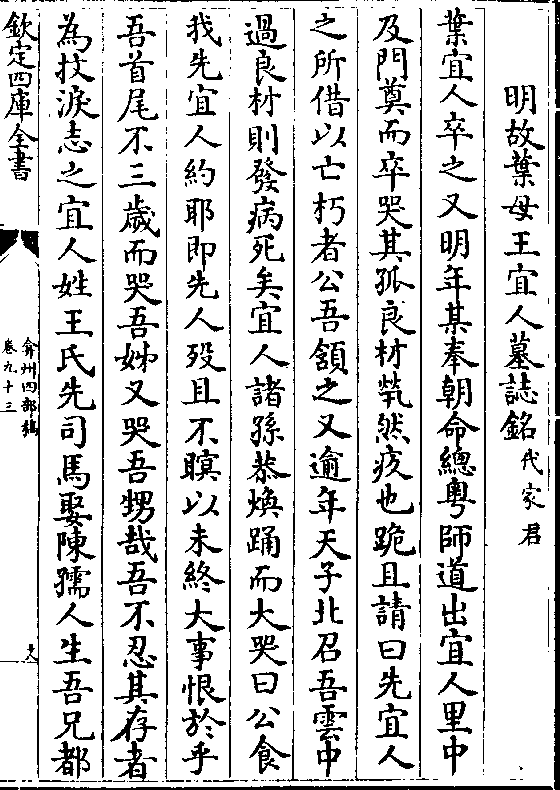 明故葉母王宜人墓誌銘代家君
葉宜人卒之又明年某奉朝命總粤師道出宜人里中
及門奠而卒哭其孤良材煢然疚也跪且請曰先宜人
之所借以亡朽者公吾頷之又逾年天子北召吾雲中
過良材則發病死矣宜人諸孫恭煥踊而大哭曰公食
我先宜人約耶即先人歿且不瞑以未終大事恨於乎
吾首尾不三歲而哭吾姊又哭吾甥哉吾不忍其存者
為抆淚志之宜人姓王氏先司馬娶陳孺人生吾兄都
欽定四庫全書
弇州四部稿
卷九十三